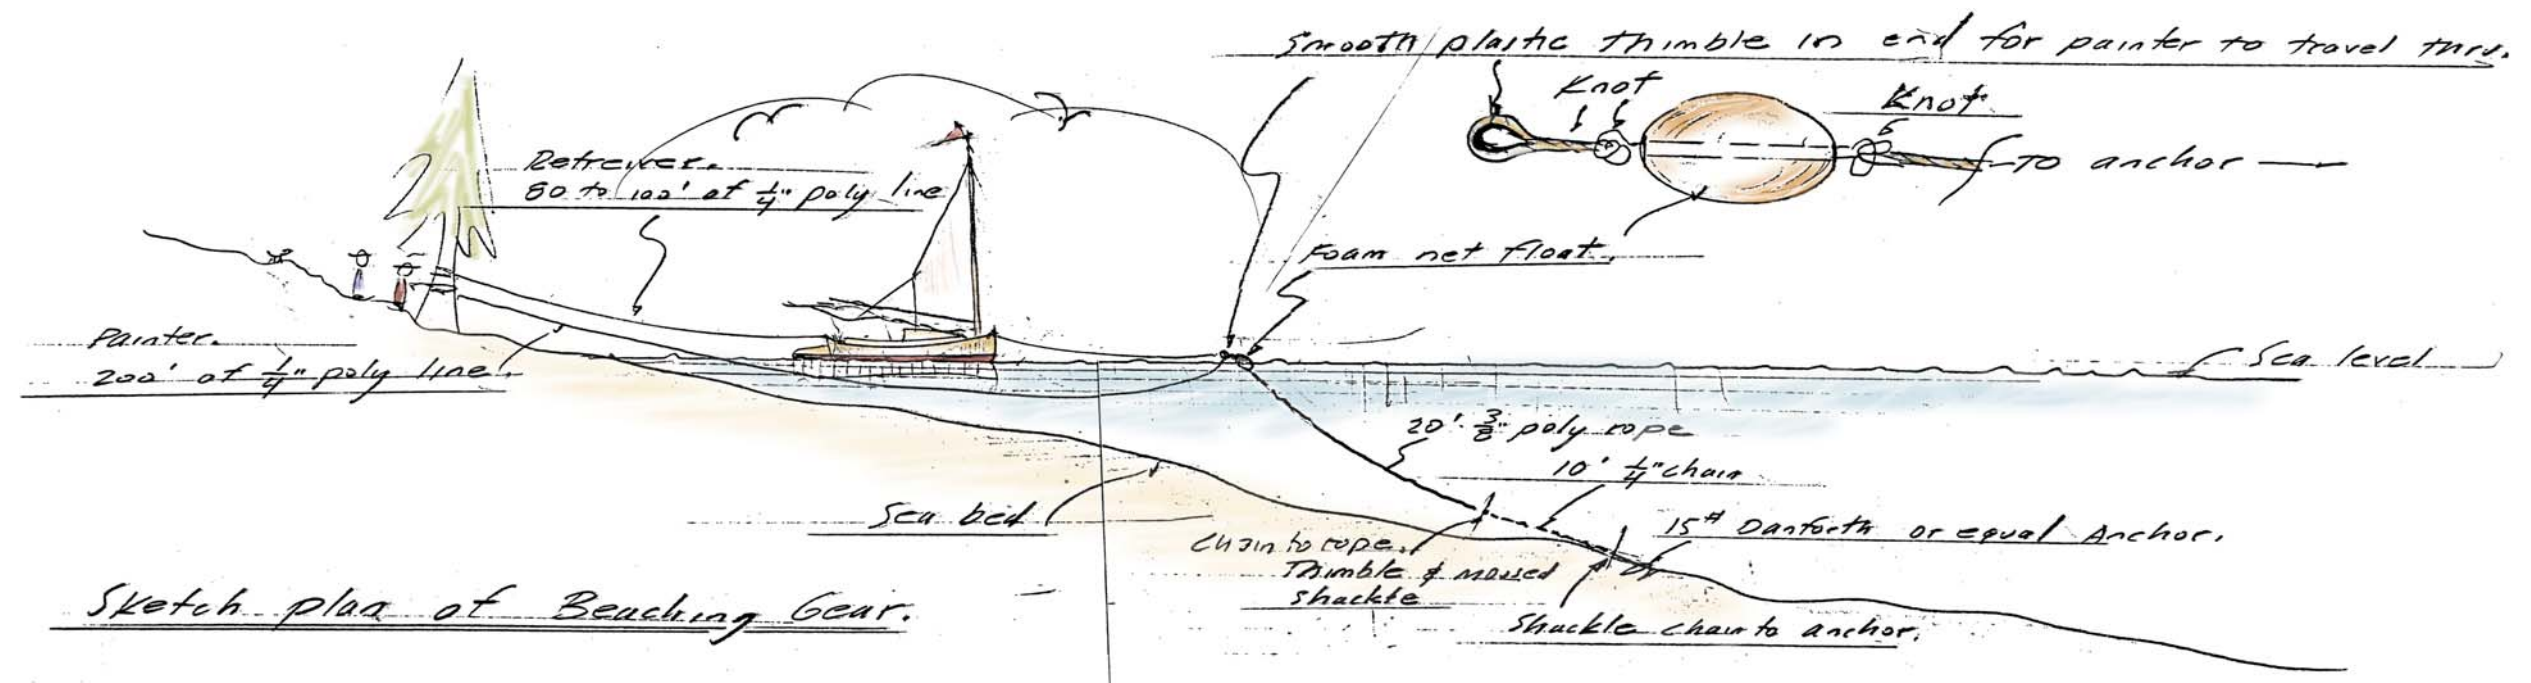 Smooth plastic thimble in end for painter to travel thru.
Knot
Knot
To anchor
Retrever.
80 to 100' of 1/4" poly line
Foam net float.
Painter.
200' of 1/4" poly line.
Sea level
20' 3/8" poly rope
10' 1/4" chain
Sea bed
15# Danforth or equal Anchor.
Chain to rope.
Thimble &
shackle
Shackle chain to anchor.
Sketch plan of Beaching Gear.